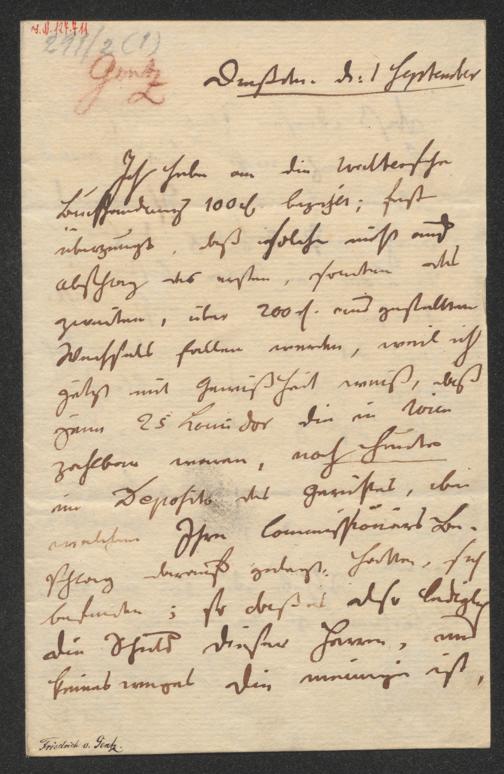 291/2 (1)
Gentz
Dresden. d. 1 September
Ich habe an die Walthersche
Buchhandlung 100 bezahlt; fest
überzeugt, daß solche nicht auf
Abschlag des ersten, sondern des
zweiten, über 200 ausgestellten
Wechsels fallen werden, weil ich
jetzt mit Gewißheit weiß, daß
jene 25 Louisdor die in Wien
zahlbar waren, noch heute
im Deposito des Gerichtes, bei
welchem Ihre Commissionärs Be-
schlag darauf gelegt hatten, sich
befinden; so daß es also lediglich
die Schuld dieser Herren, und
keineswegs die meinige ist,
Friedrich v. Gentz.